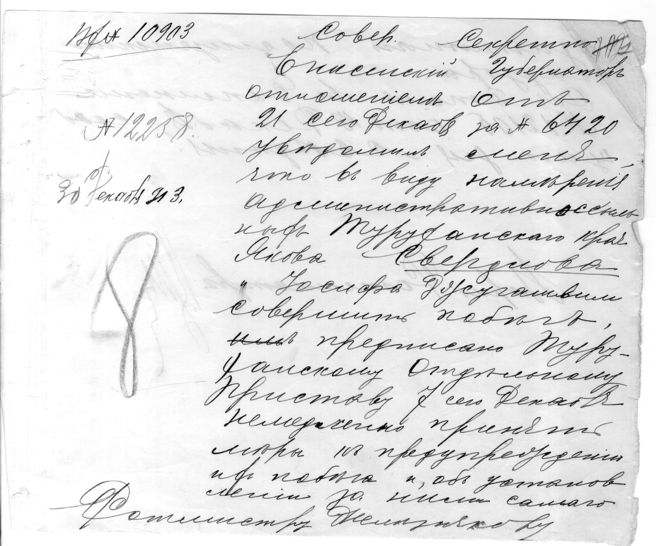 Вх № 10903
Совер. Секретно
Енисейскій Губернаторъ
отношеніемъ отъ
21 сего Декабр за № 6420
№ 12258.
увѣдомилъ меня,
30 Декабр 913.
что въ виду намѣренія
административно ссыль
ныхъ Туруханскаго края
Якова Свердлова
и Іосифа Джугашвили
совершить побѣгъ,
имъ предписано Туру-
ханскому Отдѣльному
Приставу 7 сего Декабря
немедленно принять
мѣры къ предупрежденію
ихъ побѣга и, объ установ
леніи за ними самаго
Ротмистру Железнякову